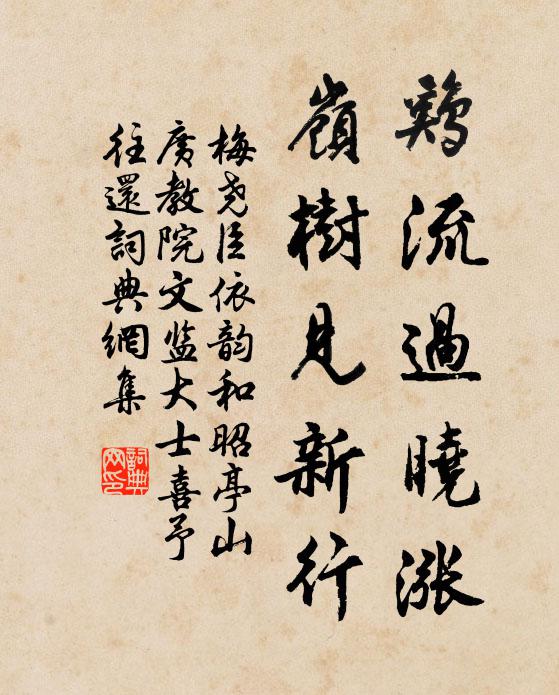 鷄流過曉漲
嶺樹見新行
梅尧臣依韵和昭亭山
廣教院文监大士喜予
往還詞典網集
詞典网印